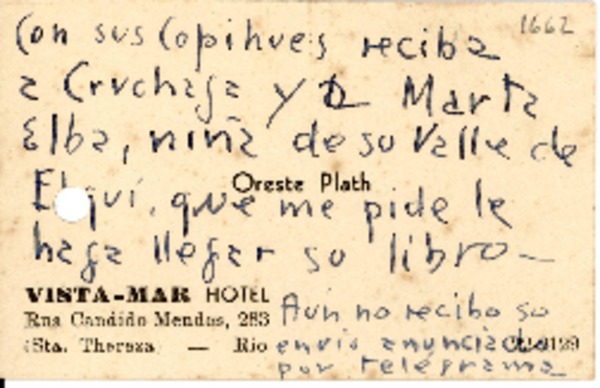 1662
Con sus Copihues reciba
a Cruchaga y a Marta
Elba, niña de su Valle de
Elqui, que me pide le
Oreste Plath
haga llegar su libro—
VISTA-MAR HOTEL
Rua Candido Mendes, 283
(Sta. Thereza) — Rio
Aún no recibo su
envío anunciado
por telégrama